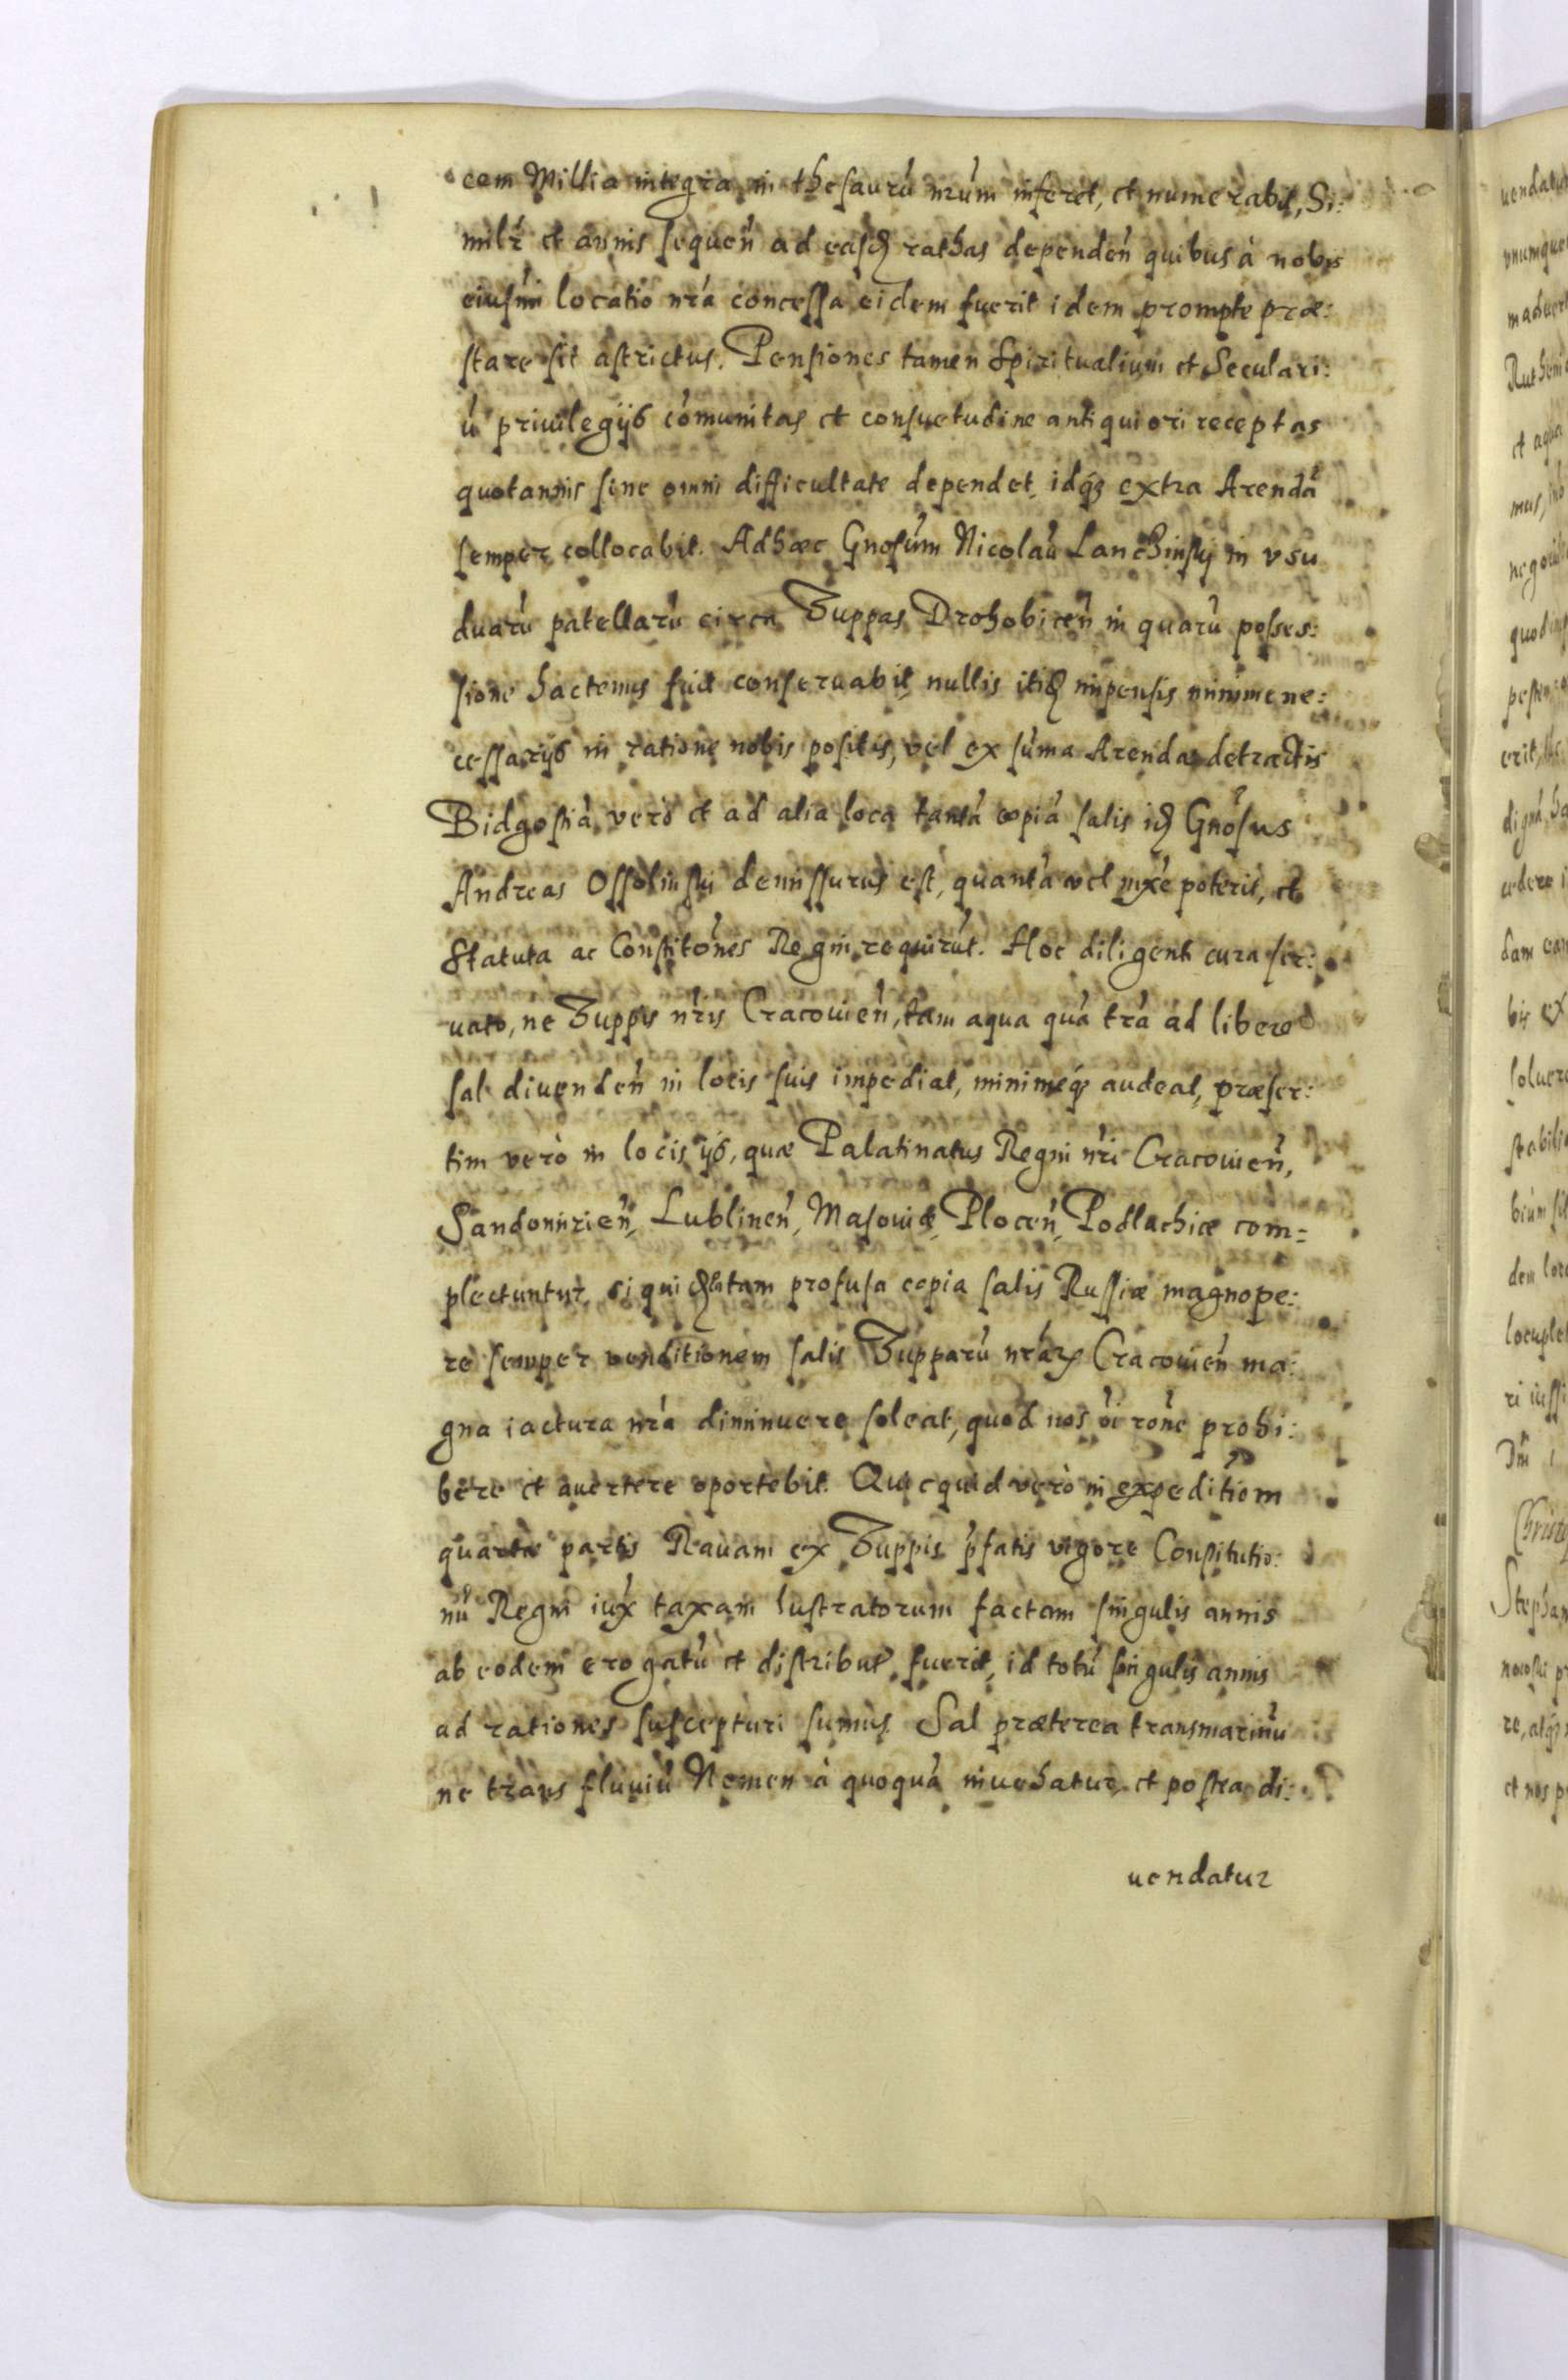 cem Millia integra in thesaurũ nrũm inferet, et numerabit, Si:
milr̃ et annis sequeñ ad easđ rathas dependeñ quibus à nobis
eiusm̃i locatio nrã concessa eidem fuerit idem prompte præ:
stare sit astrictus. Pensiones tamen Spiritualium et Seculari:
ũ priuilegijs cõmunitas et consuetudine antiquiori receptas
quotannis sine omni difficultate dependet, idq₃ extra Arendã
semper collocabit. Adhæc Gnosũm Nicolaũ Lanchinsky in vsu
duarũ patellarũ circa Zuppas Drohobiceñ in quarũ posses:
sione hactenus fuit conseruabit, nullis itiđ impensis minime ne:
cessarijs in ratione nobis positis, vel ex sũma Arendæ detractis
Bidgostiã verò et ad alia loca tantã copiã salis iđ Gnõsus
Andreas Ossolinsky demissurus est, quantã vel mx̃e poterit, et
Statuta ac Constitõnes Regni requirũt. Hoc diligenti cura ser:
uato, ne Zuppis nr̃is Cracouieñ, tam aqua quã trã ad libere
sal divendeñ in locis suis impediat, minimeq₃ audeat, præser:
tim verò in locis ijs, quæ Palatinatus Regni nr̃i Cracouieñ,
Sandomirieñ, Lublineñ, Masouiæ, Ploceñ, Podlachiæ com=
plectuntur, siquiđ tam profusa copia salis Russiæ magnope:
re semper venditionem salis Zupparũ nrãꝝ Cracouieñ ma:
gna iactura nrã diminuere soleat, quod nos oĩ rõne prohi:
bere et auertere oportebit. Quicquid verò in expeditiõm
quartæ partis Rauam ex Zuppis p̃fatis vigore Constitutio:
nũ Regni iux̃ taxam lustratorum factam singulis annis
ab eodem erogatũ et distribut̃ fuerit, id totũ singulis annis
ad rationes suscepturi sumus. Sal præterea transmarinũ
ne trans fluuiũ Nemen à quoquã inuehatur, et postea di:
uendatur